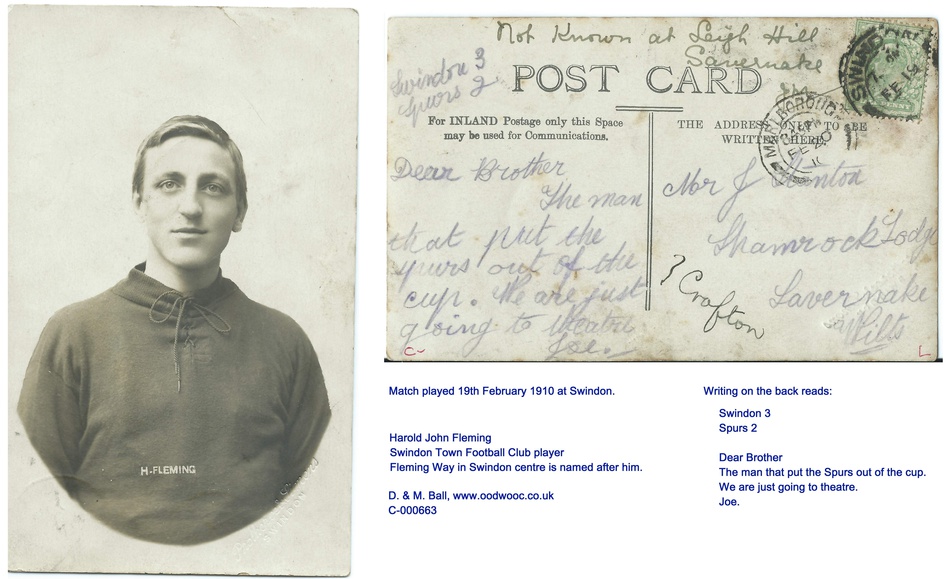 H-FLEMING
Not Known at Leigh Hill
Savernake
Swindon 3
Spurs 2
POST CARD
For INLAND Postage only this Space
may be used for Communications.
THE ADDRESS ONLY TO BE
WRITTEN HERE.
SWINDON
FE 19
MARLBOROUGH
FE 20
Dear Brother
The man
that put the
spurs out of the
cup. We are just
going to theatre
Joe.
Mr J
Shamrock Lodge
Savernake
Wilts
? Crofton
C-
L
Match played 19th February 1910 at Swindon.
Harold John Fleming
Swindon Town Football Club player
Fleming Way in Swindon centre is named after him.
D. & M. Ball, www.oodwooc.co.uk
C-000663
Writing on the back reads:
Swindon 3
Spurs 2
Dear Brother
The man that put the Spurs out of the cup.
We are just going to theatre.
Joe.